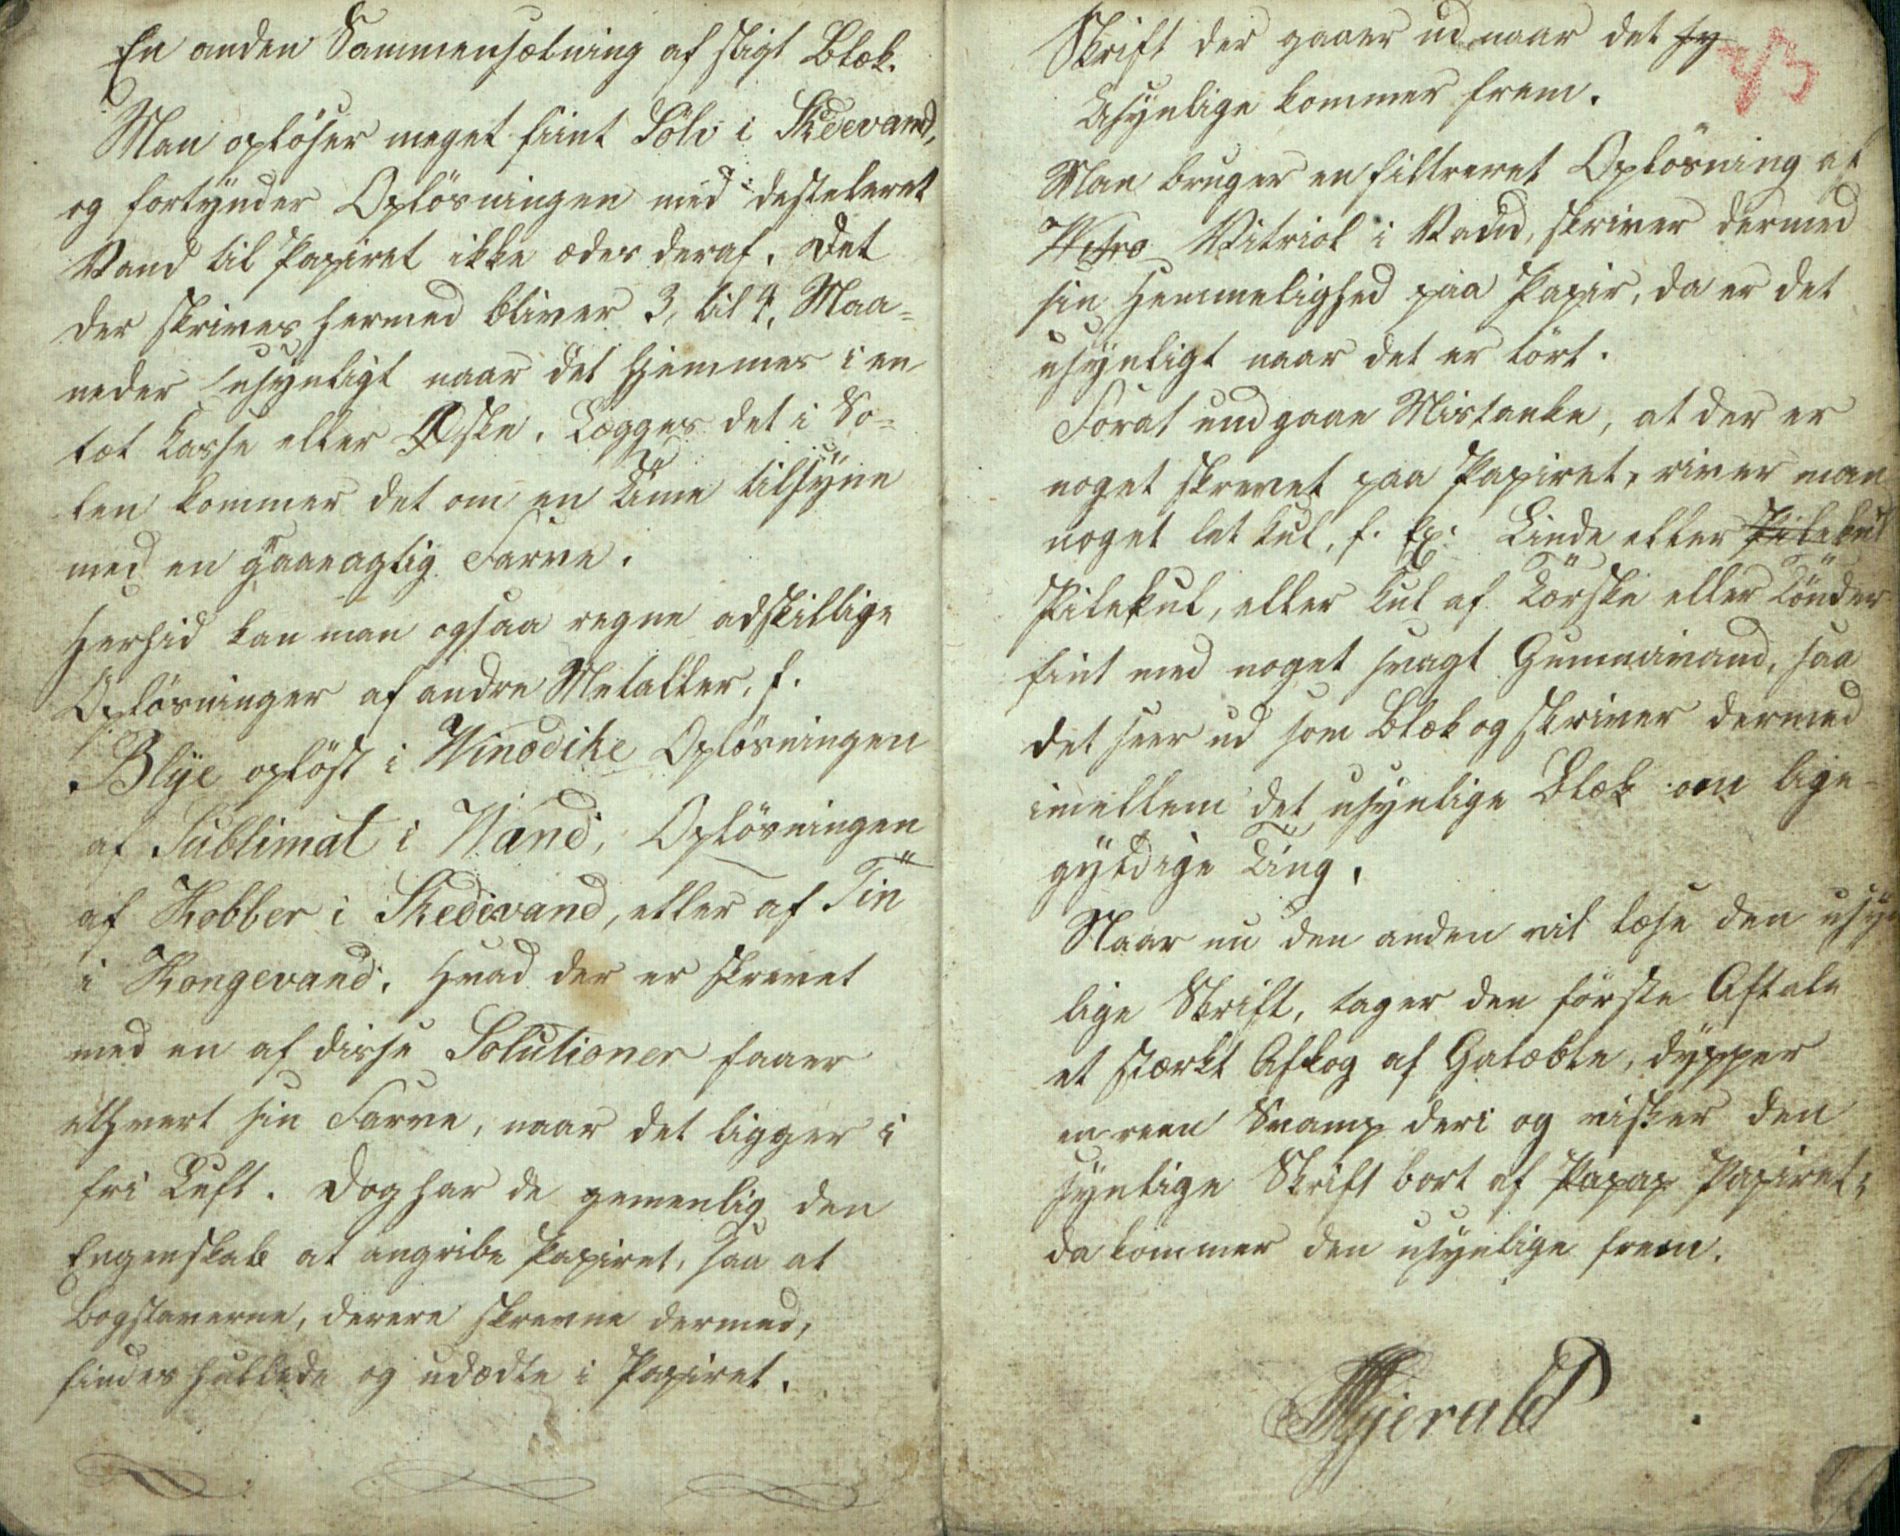 En anden Sammensætning af sligt Blæk.
Man opløser meget fiint Sölv i Skedevand,
og fortÿnder Opløsningen med desteleret
Vand til Papiret ikke ædes deraf. Det
der skrives hermed bliver 3, til 4, Maa=
neder usynligt naar det gjemmes i en
tæt Kasse eller Æske. Lægges det i So=
len kommer det om en Time tilsÿne
med en graaeagtig Farve.
Herhid kan man ogsaa regne adskillige
Opløsninger af andre Metaller, f.
Blÿe opløst i Vinædike Opløsningen
af Sublimat i Vand, Opløsningen
af Kobber i Skedevand, eller af Tin
i Kongevand. Hvad der er skrevet
med en af disse Solutioner faaer
ethvert sin Farve, naar det ligger i
fri Luft. Dog har de gemenlig den
Engenskab at angribe Papiret, saa at
Bogstaverne, derere skrevne dermed,
findes hullede og udædte i Papiret.
Skrift der gaaer ud naar det sy
Usynlige kommer frem.
43
Man bruger en filtreret Opløsning af
Vitriol i Vand, skriver dermed
sin Hemmelighed paa Papir, da er det
usÿnligt naar det er tört.
Forat undgaae Mistanke, at der er
noget skrevet paa Papiret, river man
noget let Kul, f. Ex: Linde eller Pilekul
Pilekul, eller Kul af Törske eller Tönder
fint med noget svagt Gummivand, saa
det seer ud som Blæk og skriver dermed
imellem det usynlige Blæk om lige=
gÿldige Ting.
Naar nu den anden vil læse den usÿn
lige Skrift, tager den förste Aftale
et stærkt Afkog af Galæble, dÿpper
en reen Svamp deri og visker den
synlige Skrift bort af Papap Papiret;
da kommer den usynlige frem.
Hjerald